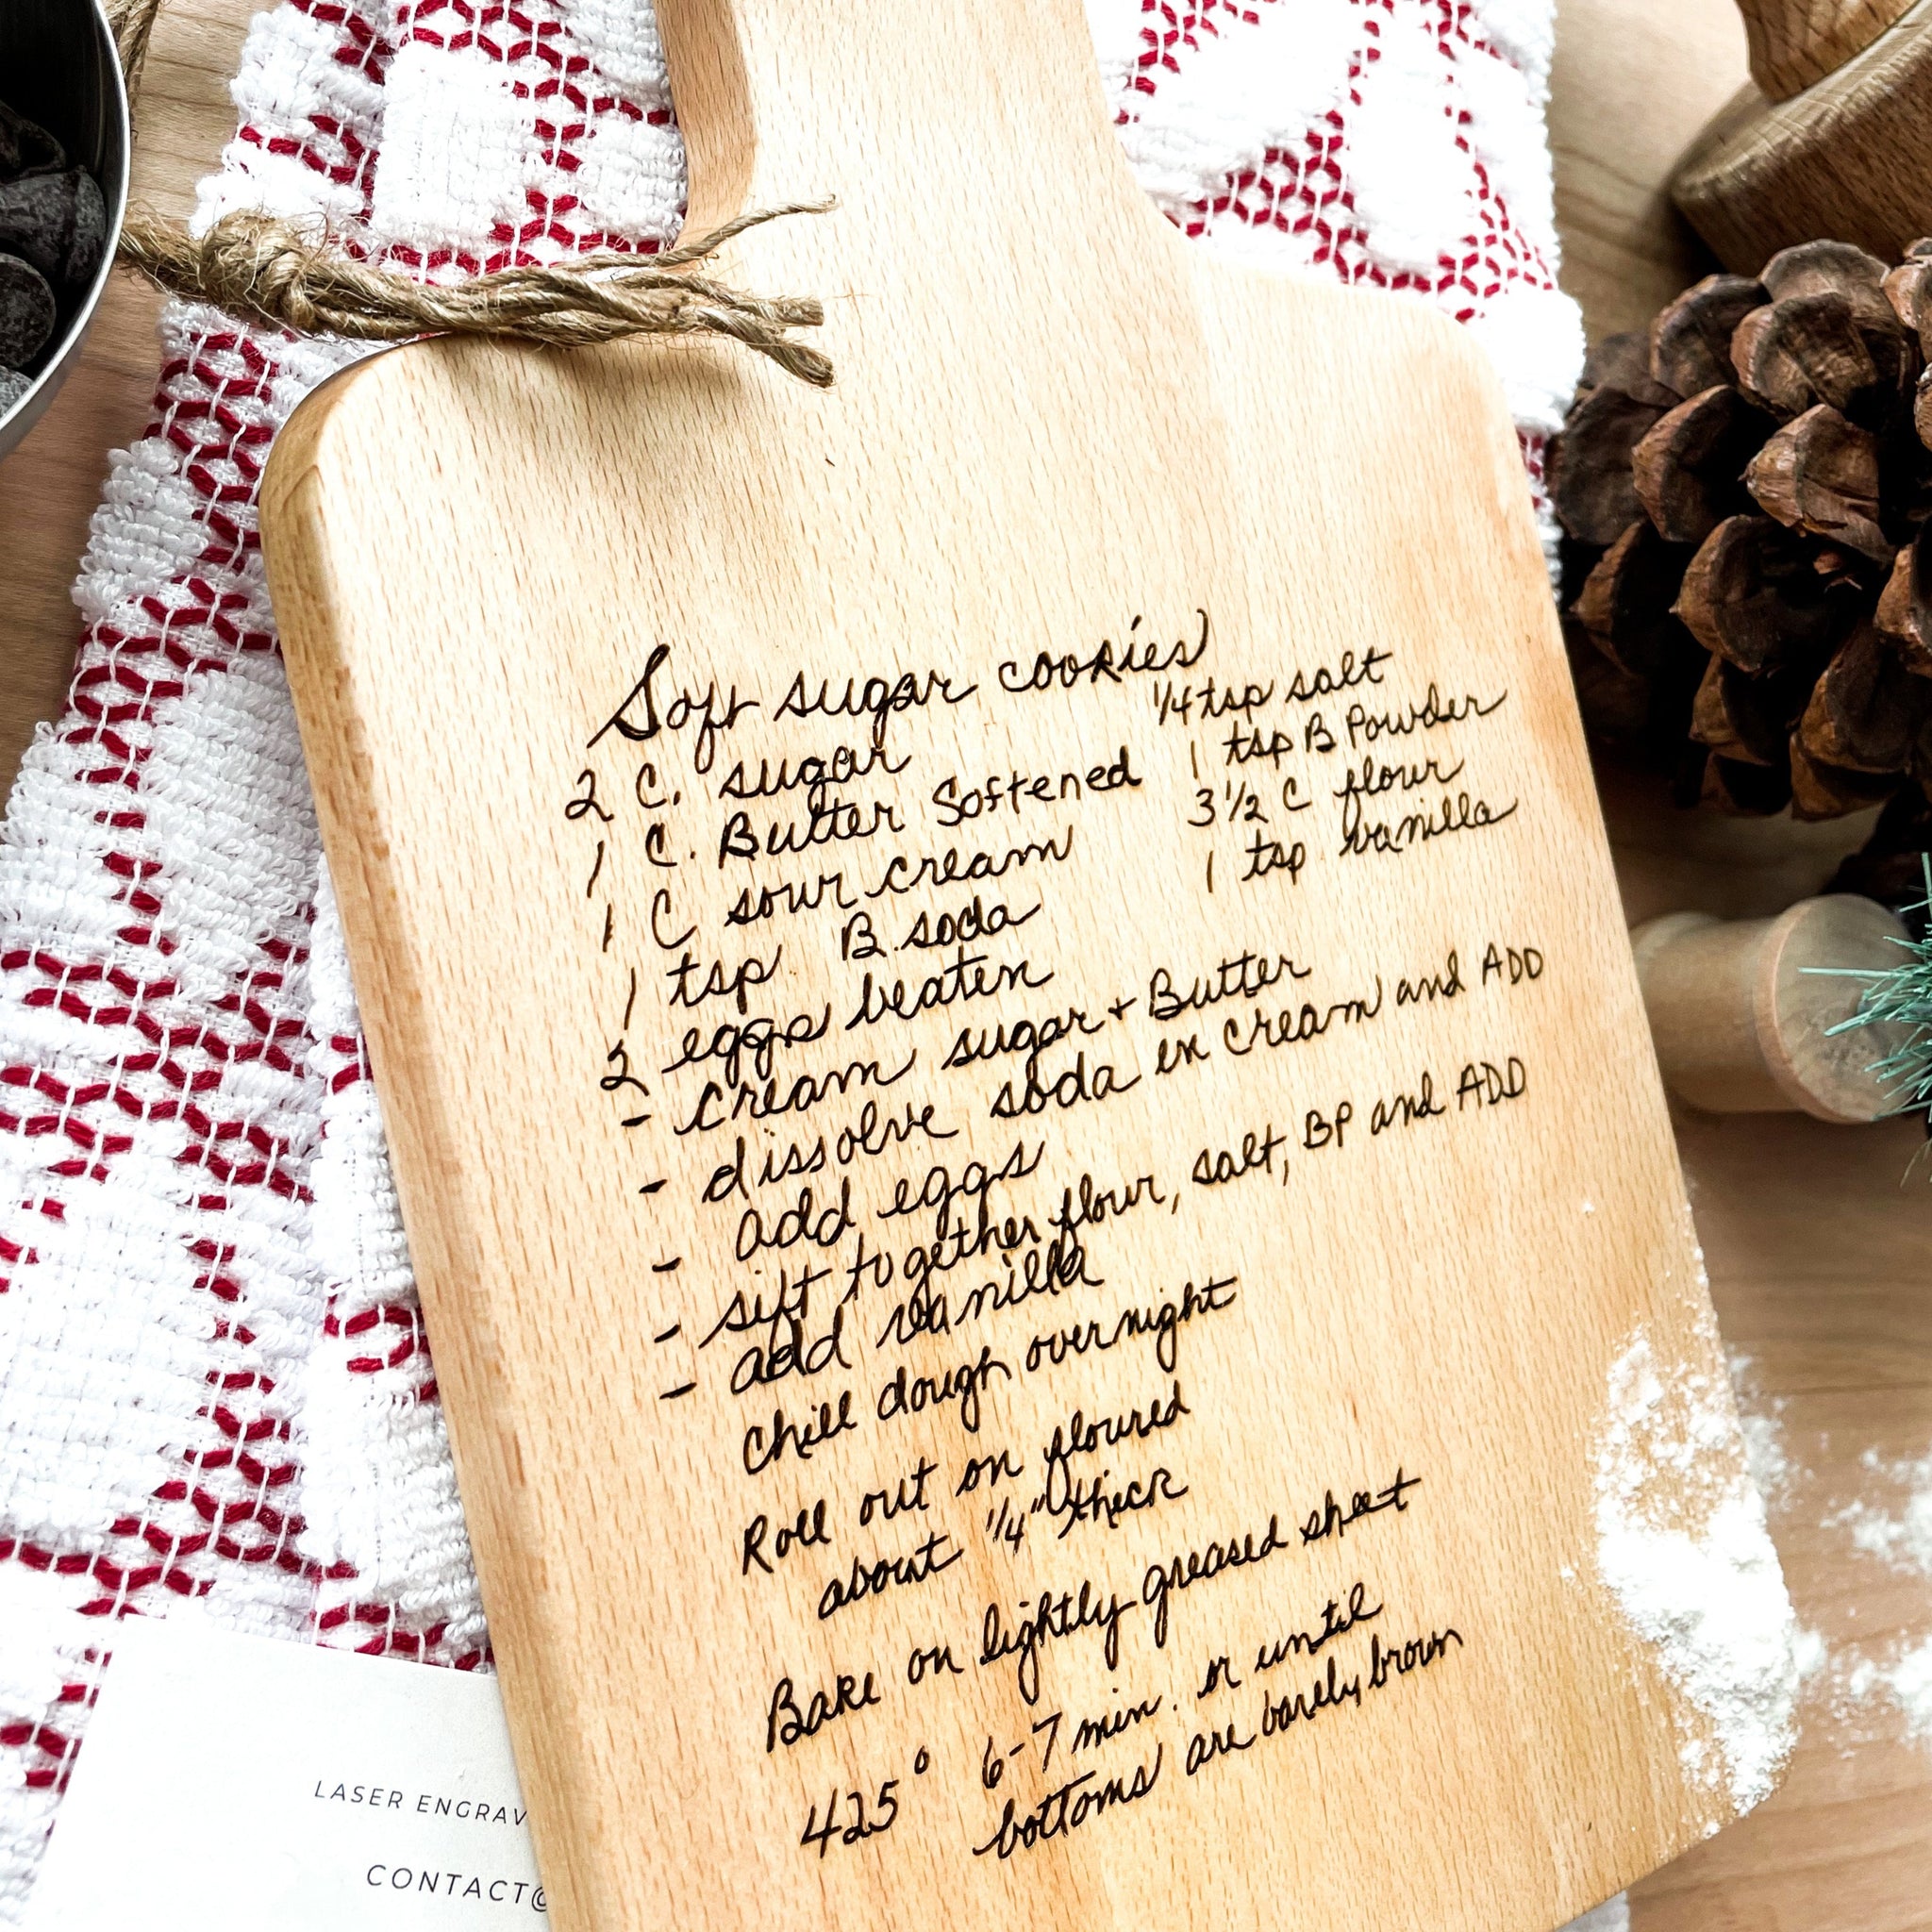 Soft sugar cookies
2 C. sugar
1 C. Butter Softened
1 C sour cream
1 tsp B. soda
2 eggs beaten
1/4 tsp salt
1 tsp B Powder
3 1/2 C flour
1 tsp vanilla
- cream sugar + Butter
- dissolve soda in cream and ADD
- add eggs
- sift together flour, salt, BP and ADD
- add vanilla
chill dough overnight
Roll out on floured
about 1/4" thick
Bake on lightly greased sheet
425° 6-7 min. or until
bottoms are barely brown
LASER ENGRAV
CONTACT@